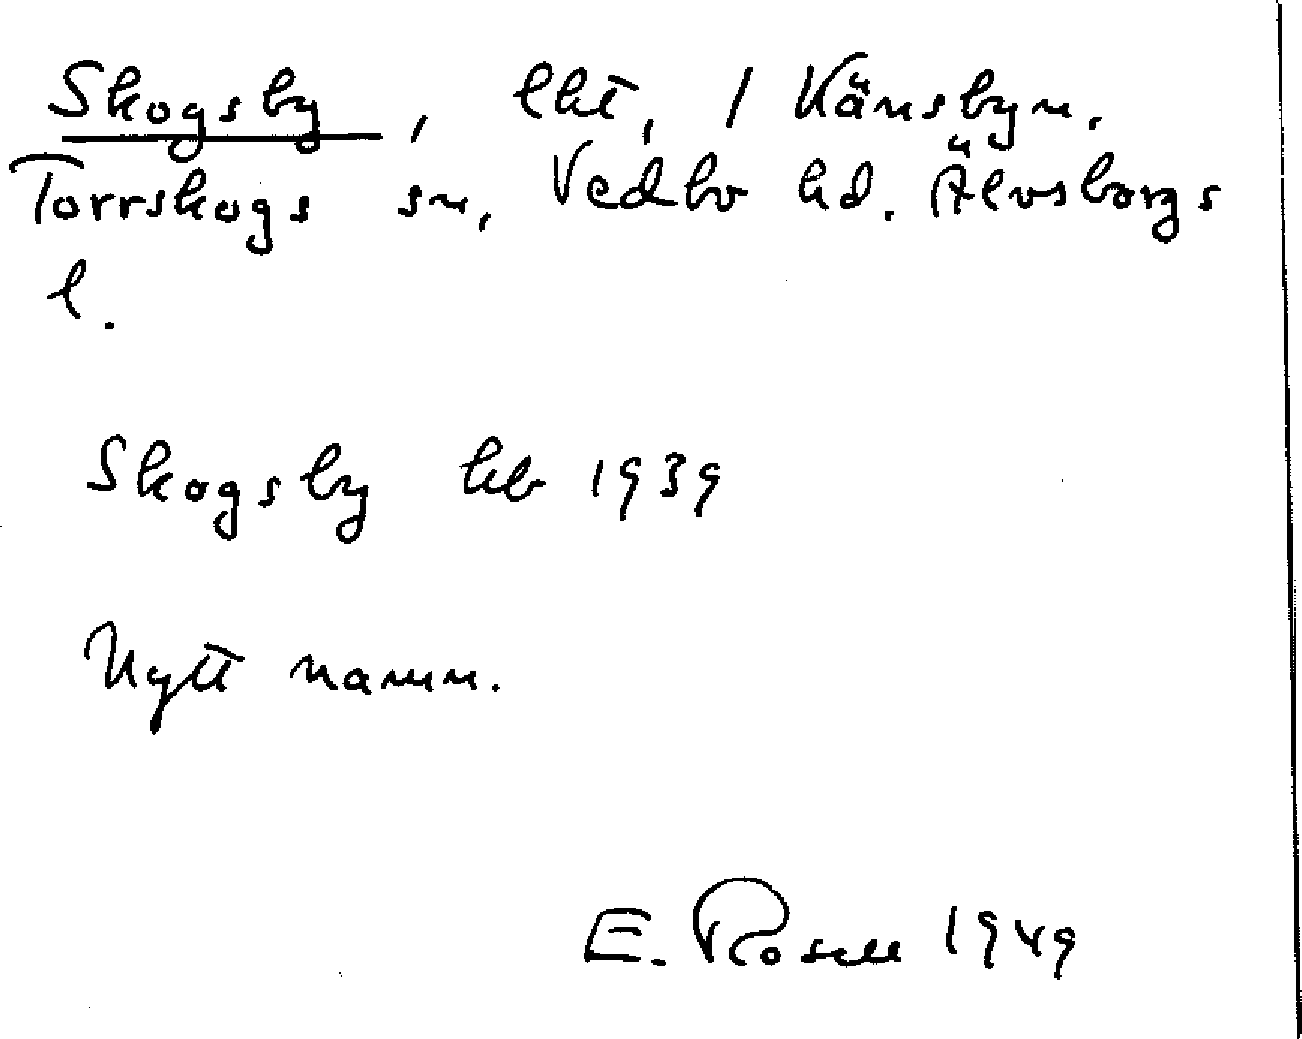 Skogsby, lht, / Känsbyn.
Torrskogs sn, Vedbo hd. Älvsborgs
l.
Skogsby kb 1939
Nytt namn.
E. Rosell 1949